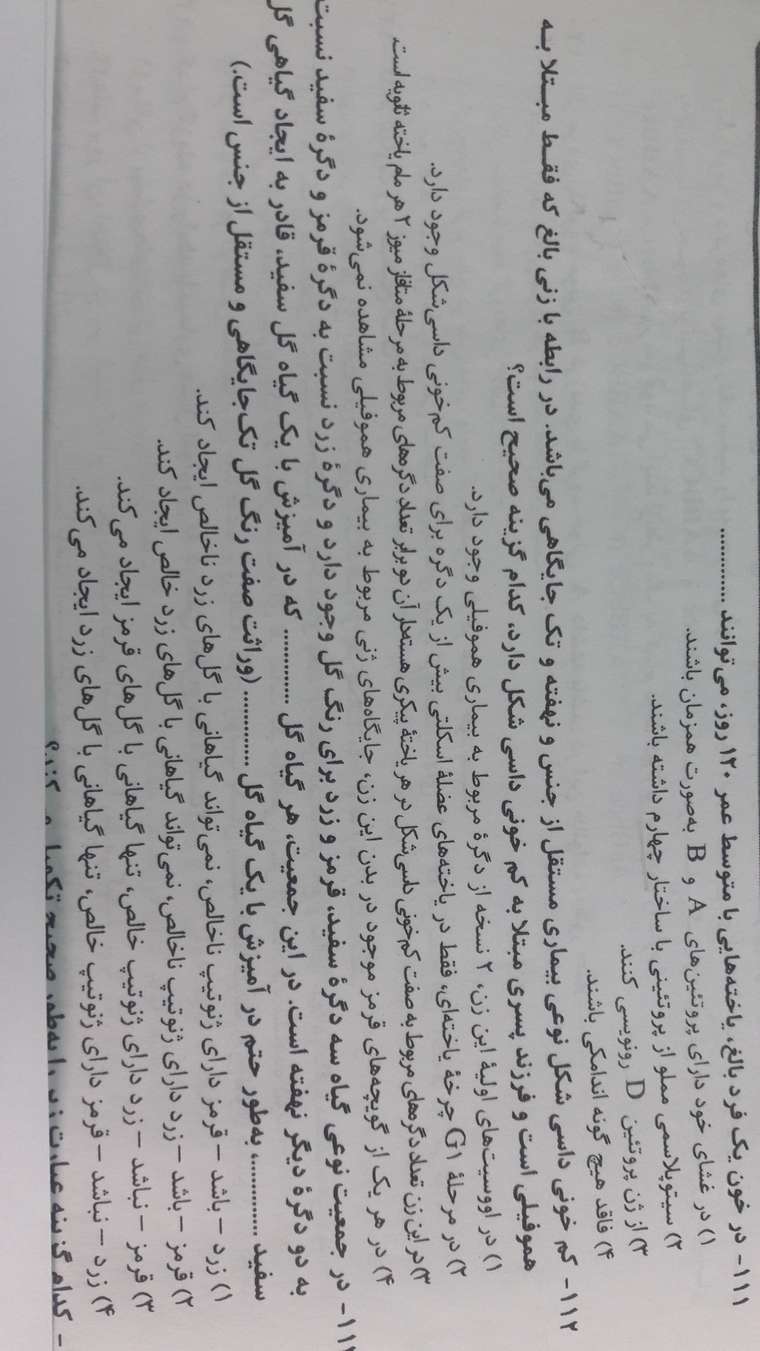 ۱۱۱- در خون یک فرد بالغ، یاخته‌هایی با متوسط عمر ۱۲۰ روز، می‌توانند ............
۱) در غشای خود دارای پروتئین‌های A و B به‌صورت همزمان باشند.
۲) سیتوپلاسمی مملو از پروتئینی با ساختار چهارم داشته باشند.
۳) از ژن پروتئین D رونویسی کنند.
۴) فاقد هیچ گونه اندامکی باشند.
۱۱۲- کم خونی داسی شکل نوعی بیماری مستقل از جنس و نهفته و تک جایگاهی می‌باشد. در رابطه با زنی بالغ که فقط مبتلا به
هموفیلی است و فرزند پسری مبتلا به کم خونی داسی شکل دارد، کدام گزینه صحیح است؟
۱) در اووسیت‌های اولیهٔ این زن، ۲ نسخه از دگرهٔ مربوط به بیماری هموفیلی وجود دارد.
۲) در مرحلهٔ G۱ چرخهٔ یاخته‌ای، فقط در یاخته‌های عضلهٔ اسکلتی بیش از یک دگره برای صفت کم‌خونی داسی‌شکل وجود دارد.
۳) در این زن تعداد دگره‌های مربوط به صفت کم‌خونی داسی‌شکل در هر یاختهٔ پیکری هسته‌دار آن دو برابر تعداد دگره‌های مربوط به مرحلهٔ متافاز میوز ۲ هر مام یاخته ثانویه است.
۴) در هر یک از گویچه‌های قرمز موجود در بدن این زن، جایگاه‌های ژنی مربوط به بیماری هموفیلی مشاهده نمی‌شود.
در جمعیت نوعی گیاه سه دگرهٔ سفید، قرمز و زرد برای رنگ گل وجود دارد و دگرهٔ زرد نسبت به دگرهٔ قرمز و دگرهٔ سفید نسبت
به دو دگرهٔ دیگر نهفته است. در این جمعیت، هر گیاه گل ............ که در آمیزش با یک گیاه گل سفید، قادر به ایجاد گیاهی گل
سفید ............، به‌طور حتم در آمیزش با یک گیاه گل ............ (وراثت صفت رنگ گل تک‌جایگاهی و مستقل از جنس است.)
۱) زرد – باشد – قرمز دارای ژنوتیپ ناخالص، نمی‌تواند گیاهانی با گل‌های زرد ناخالص ایجاد کند.
۲) قرمز – باشد – زرد دارای ژنوتیپ ناخالص، نمی‌تواند گیاهانی با گل‌های زرد خالص ایجاد کند.
۳) قرمز – نباشد – زرد دارای ژنوتیپ خالص، تنها گیاهانی با گل‌های قرمز ایجاد می‌کند.
۴) زرد – نباشد – قرمز دارای ژنوتیپ خالص، تنها گیاهانی با گل‌های زرد ایجاد می‌کند.
- کدام گزینه عبارت زیر را به‌طور صحیح تکمیل می‌کند؟